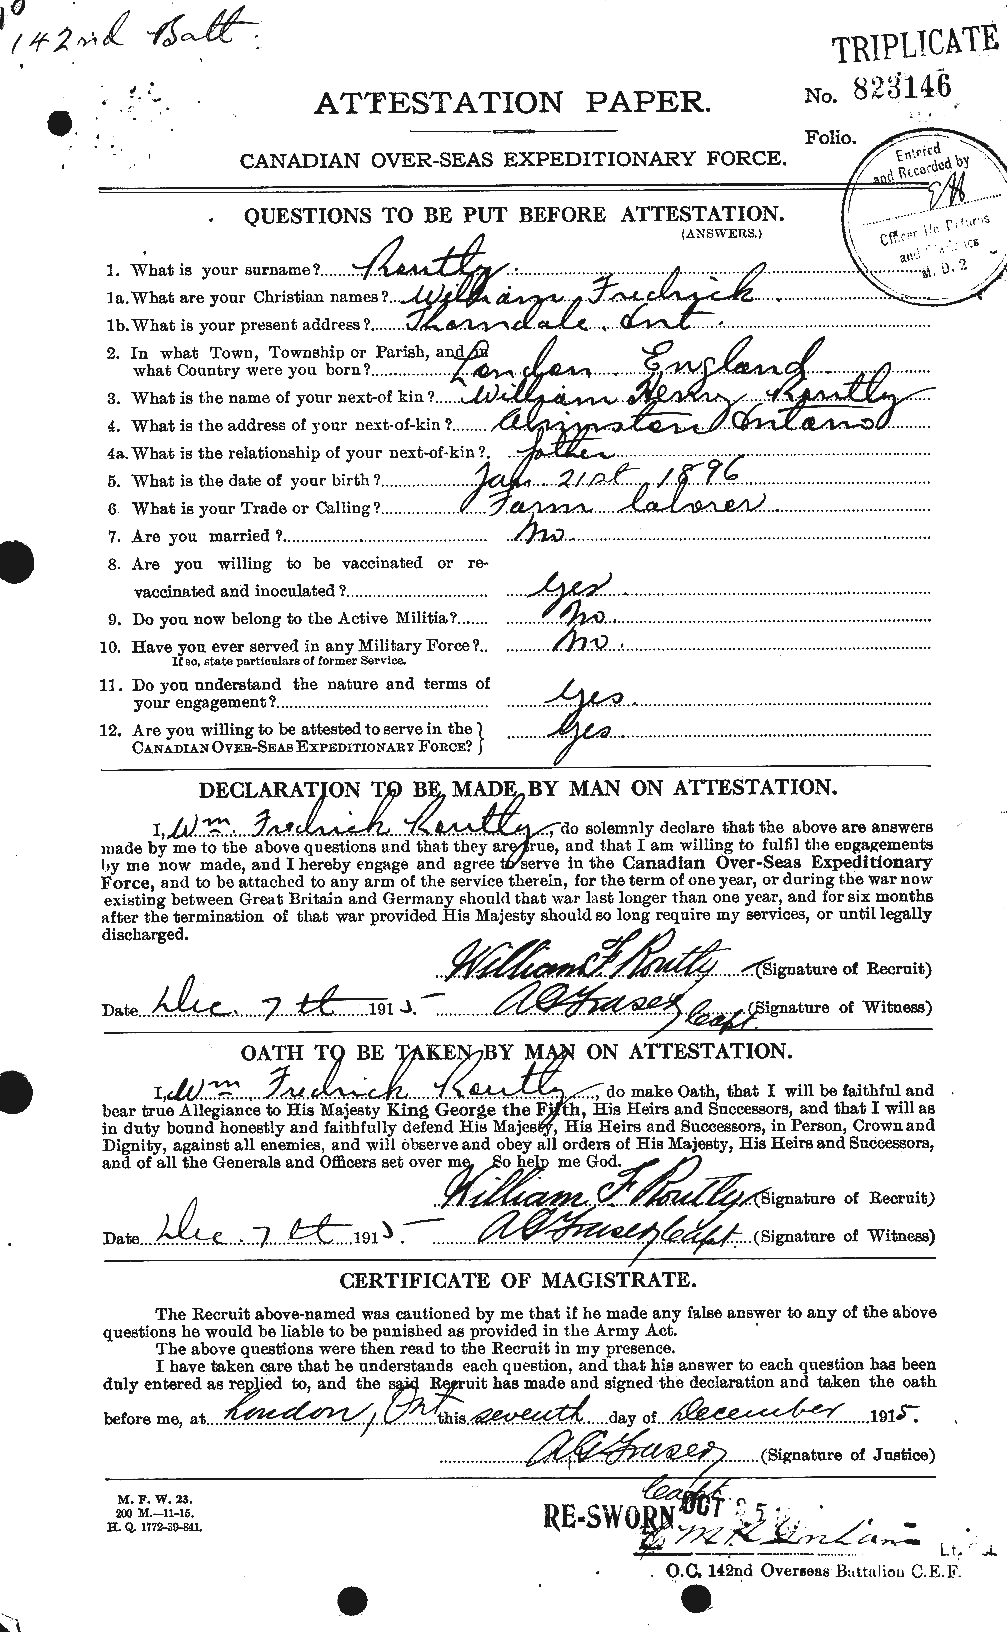 142nd Batt.
TRIPLICATE
ATTESTATION PAPER.
No. 823146
Folio.
CANADIAN OVER-SEAS EXPEDITIONARY FORCE.
Entered
and Recorded by
Officer i/c Returns
and
M. D. 2
QUESTIONS TO BE PUT BEFORE ATTESTATION.
(ANSWERS.)
1. What is your surname? Routly
1a. What are your Christian names? William Fredrick
1b. What is your present address? Thorndale. Ont.
2. In what Town, Township or Parish, and in
what Country were you born? London. England
3. What is the name of your next-of kin? William Henry Routly
4. What is the address of your next-of-kin? Ontario
4a. What is the relationship of your next-of-kin? father
5. What is the date of your birth? Jan. 21st, 1896
6 What is your Trade or Calling? Farm laborer
7. Are you married? No.
8. Are you willing to be vaccinated or re-
vaccinated and inoculated? Yes
9. Do you now belong to the Active Militia? No.
10. Have you ever served in any Military Force? No.
If so, state particulars of former Service.
11. Do you understand the nature and terms of
your engagement? Yes.
12. Are you willing to be attested to serve in the
CANADIAN OVER-SEAS EXPEDITIONARY FORCE? Yes.
DECLARATION TO BE MADE BY MAN ON ATTESTATION.
I, Wm. Fredrick Routly, do solemnly declare that the above are answers
made by me to the above questions and that they are true, and that I am willing to fulfil the engagements
by me now made, and I hereby engage and agree to serve in the Canadian Over-Seas Expeditionary
Force, and to be attached to any arm of the service therein, for the term of one year, or during the war now
existing between Great Britain and Germany should that war last longer than one year, and for six months
after the termination of that war provided His Majesty should so long require my services, or until legally
discharged.
William F Routly (Signature of Recruit)
Date Dec. 7th 1915. A G Fraser Capt. (Signature of Witness)
OATH TO BE TAKEN BY MAN ON ATTESTATION.
I, Wm. Fredrick Routly, do make Oath, that I will be faithful and
bear true Allegiance to His Majesty King George the Fifth, His Heirs and Successors, and that I will as
in duty bound honestly and faithfully defend His Majesty, His Heirs and Successors, in Person, Crown and
Dignity, against all enemies, and will observe and obey all orders of His Majesty, His Heirs and Successors,
and of all the Generals and Officers set over me. So help me God.
William F Routly (Signature of Recruit)
Date Dec. 7th 1915. A G Fraser Capt. (Signature of Witness)
CERTIFICATE OF MAGISTRATE.
The Recruit above-named was cautioned by me that if he made any false answer to any of the above
questions he would be liable to be punished as provided in the Army Act.
The above questions were then read to the Recruit in my presence.
I have taken care that he understands each question, and that his answer to each question has been
duly entered as replied to, and the said Recruit has made and signed the declaration and taken the oath
before me, at London, Ont this seventh day of December 1915.
A G Fraser (Signature of Justice)
Capt.
M. F. W. 23.
200 M.—11-15.
H. Q. 1772-39-841.
RE-SWORN OCT 25
Lt.
O.C. 142nd Overseas Battalion C.E.F.